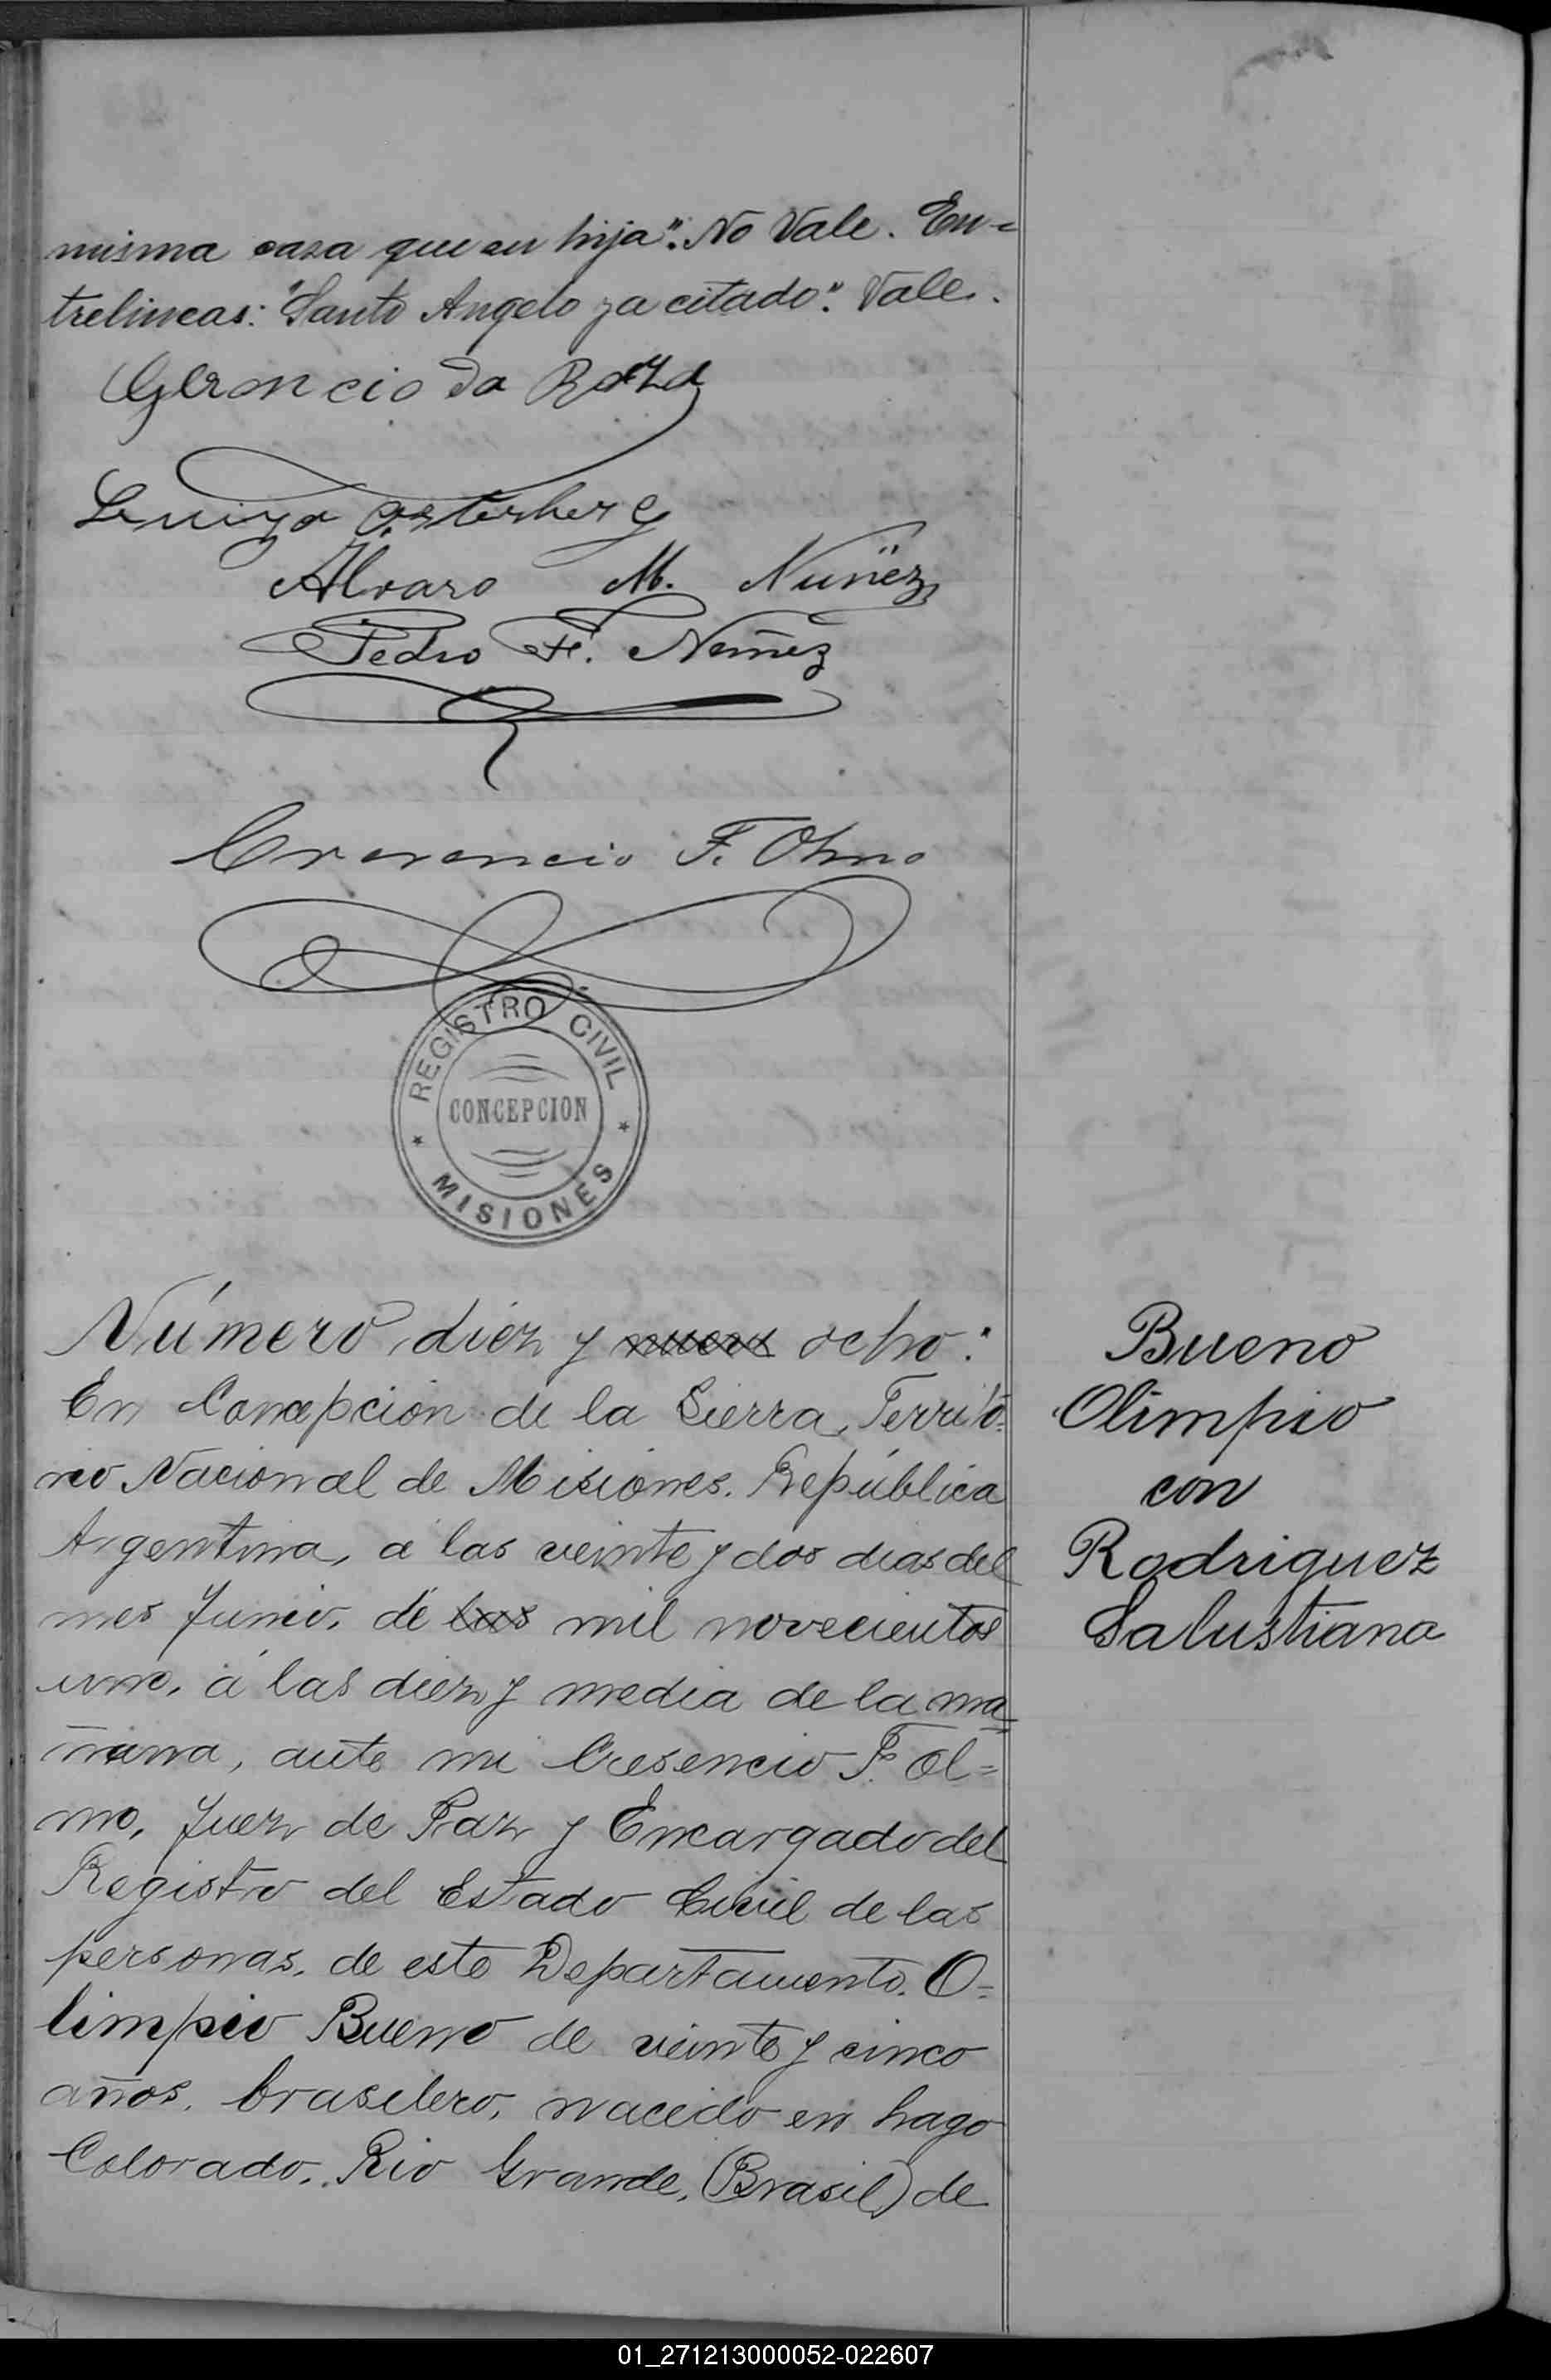 misma casa que su hija". No Vale. En-
trelineas: "Santo Angelo ya citado". Vale.
Geroncio da
Luiza Osterberg
Alvaro M. Nuñez
Pedro F. Nuñez
F. Olmo
REGISTRO CIVIL
CONCEPCION
MISIONES
Número diez y nueve ocho:
En Concepción de la Sierra, Territo-
rio Nacional de Misiones. República
Argentina, á las veinte y dos dias del
mes Junio, de las mil novecientos
uno, á las diez y media de la ma
ñana, ante mi Cresencio F. Ol=
mo, Juez de Paz y Encargado del
Registro del Estado Civil de las
personas, de este Departamento. O=
limpio Bueno de veinte y cinco
años, brasilero, nacido en
Colorado. Rio Grande, (Brasil) de
Bueno
Olimpio
con
Rodriguez
Salustiana
01_271213000052-022607